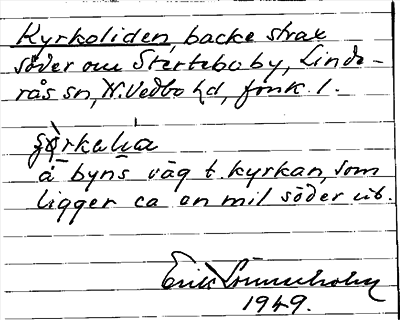 Kyrkoliden, backe strax
söder om Stertebo by, Linde-
rås sn, N. Vedbo hd, Jönk. l.
å byns väg t. kyrkan, som
ligger ca en mil söder ut.
Erik
1949.